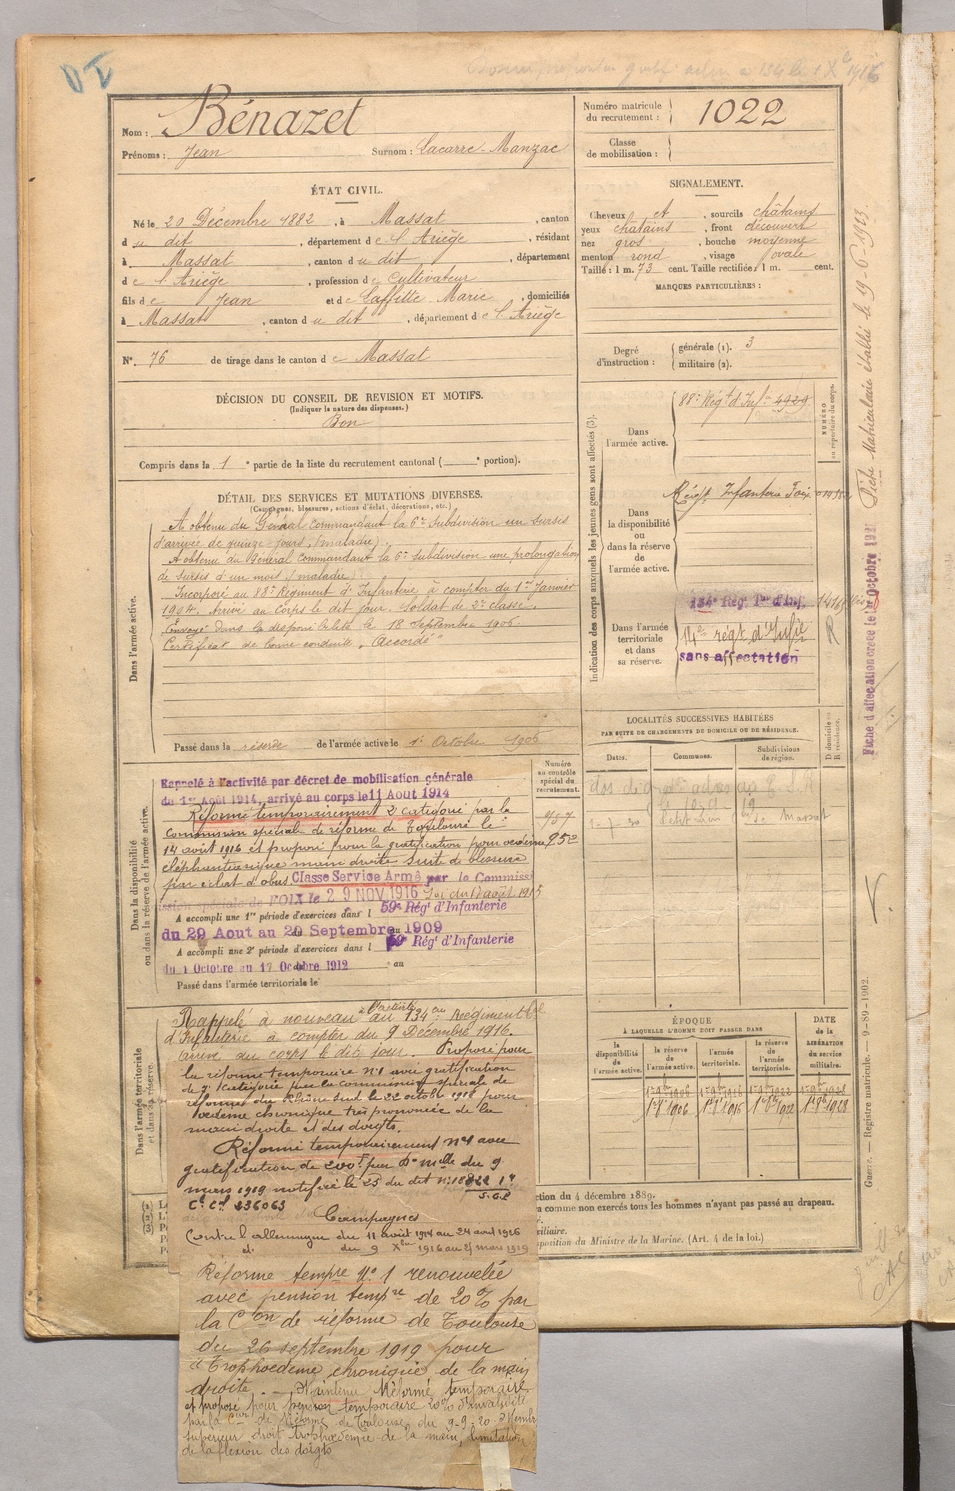 Nom : Bénazet
Prénoms : Jean Surnom : Lacarre-Manzac
Numéro matricule du recrutement : 1022
Classe de mobilisation :
ÉTAT CIVIL.
Né le 20 Décembre 1882, à Massat, canton
du dit, département de l'Ariège, résidant
à Massat, canton du dit, département
de l'Ariège, profession de Cultivateur
fils de Jean et de Laffitte Marie, domiciliés
à Massat, canton du dit, département de l'Ariège
N° 76 de tirage dans le canton de Massat
SIGNALEMENT.
Cheveux et, sourcils châtains
yeux châtains, front découvert
nez gros, bouche moyenne
menton rond, visage ovale
Taille : 1 m. 73 cent. Taille rectifiée : 1 m. cent.
MARQUES PARTICULIÈRES :
Degré d'instruction : générale (1). 3
militaire (2).
DÉCISION DU CONSEIL DE REVISION ET MOTIFS.
(Indiquer la nature des dispenses.)
Bon
Compris dans la 1e partie de la liste du recrutement cantonal ( portion).
DÉTAIL DES SERVICES ET MUTATIONS DIVERSES.
(Campagnes, blessures, actions d'éclat, décorations, etc.)
Dans l'armée active.
A obtenu du Général commandant la 6e Subdivision un surses
d'arrivée de quinze jours, (malade).
A obtenu du Général commandant la 6e subdivision une prolongation
de surses d'un mois, (malade).
Incorporé au 88e Régiment d'Infanterie à compter du 1er Janvier
1904. Arrivé au corps le dit jour. Soldat de 2e classe.
Envoyé dans la disponibilité le 18 Septembre 1906.
Certificat de bonne conduite "Accordé"
Passé dans la réserve de l'armée active le 1er Octobre 1906
Indication des corps auxquels les jeunes gens sont affectés (3).
NUMÉRO au répertoire du corps.
Dans l'armée active.
88e Régt d'Inf. 4929
Dans la disponibilité ou dans la réserve de l'armée active.
Régt Infanterie Foix
Dans l'armée territoriale et dans sa réserve.
134e Rég. d'Inf.
14e régt d'Infie
sans affectation
Fiche d'affectation créée le Octobre 19
Pièce Matriculaire établie le 19-6-1923
LOCALITÉS SUCCESSIVES HABITÉES
PAR SUITE DE CHANGEMENTS DE DOMICILE OU DE RÉSIDENCE.
Dates. Communes. Subdivisions de région. D domicile ou R résidence.
Massat
Dans la disponibilité ou dans la réserve de l'armée active.
Numéro au contrôle spécial du recrutement.
Rappelé à l'activité par décret de mobilisation générale
du 1er Août 1914, arrivé au corps le 11 Août 1914
Réformé temporairement 2e catégorie par la
Commission spéciale de réforme de Toulouse le
14 août 1916 et proposé pour la gratification pour oedème
éléphantiasique main droite suite de blessure
par éclat d'obus. Classé Service Armé par la Commis
sion spéciale de FOIX le 29 NOV 1916
A accompli une 1re période d'exercices dans l 59e Régt d'Infanterie
du 29 Aout au 20 Septembre 1909
A accompli une 2e période d'exercices dans l 59e Régt d'Infanterie
du 1 Octobre au 17 Octobre 1912 au
Passé dans l'armée territoriale le
Dans l'armée territoriale et dans sa réserve.
Rappelé à nouveau à l'activité au 134e Régiment
d'Infanterie à compter du 9 Décembre 1916.
Arrivé au corps le dit jour. Proposé pour
la réforme temporaire n°1 avec gratification
de 7e catégorie par la commission spéciale de
réforme du Rhône Sud le 22 octobre 1918 pour
oedème chronique très prononcé de la
main droite et des doigts.
Réformé temporairement n°1 avec
gratification de 200f par Don Mlle du 9
mars 1919 notifiée le 25 du dit
Campagnes
Contre l'allemagne du 11 août 1914 au 24 août 1916
d° du 9 Xbre 1916 au 25 mars 1919
Réforme tempre N°1 renouvelée
avec pension tempre de 20% par
la Con de réforme de Toulouse
du 26 septembre 1919 pour
"Trophoedème chronique de la main
droite. — Maintenu Réformé temporaire
et proposé pour pension temporaire 20% d'invalidité
par la Con de Réforme de Toulouse du 9-9-20. Membre
supérieur droit trophoedémie de la main, limitation
de la flexion des doigts
ÉPOQUE
À LAQUELLE L'HOMME DOIT PASSER DANS
DATE de la LIBÉRATION du service militaire.
la disponibilité de l'armée active. la réserve de l'armée active. l'armée territoriale. la réserve de l'armée territoriale.
ction du 4 décembre 1889.
a comme non exercés tous les hommes n'ayant pas passé au drapeau.
xiliaire.
sposition du Ministre de la Marine. (Art. 4 de la loi.)
Guerre. — Registre matricule. — 9-89-1902.